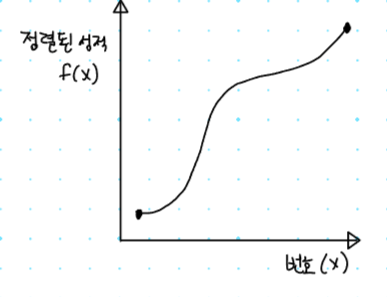 정렬된 성적
f(x)
번호 (x)